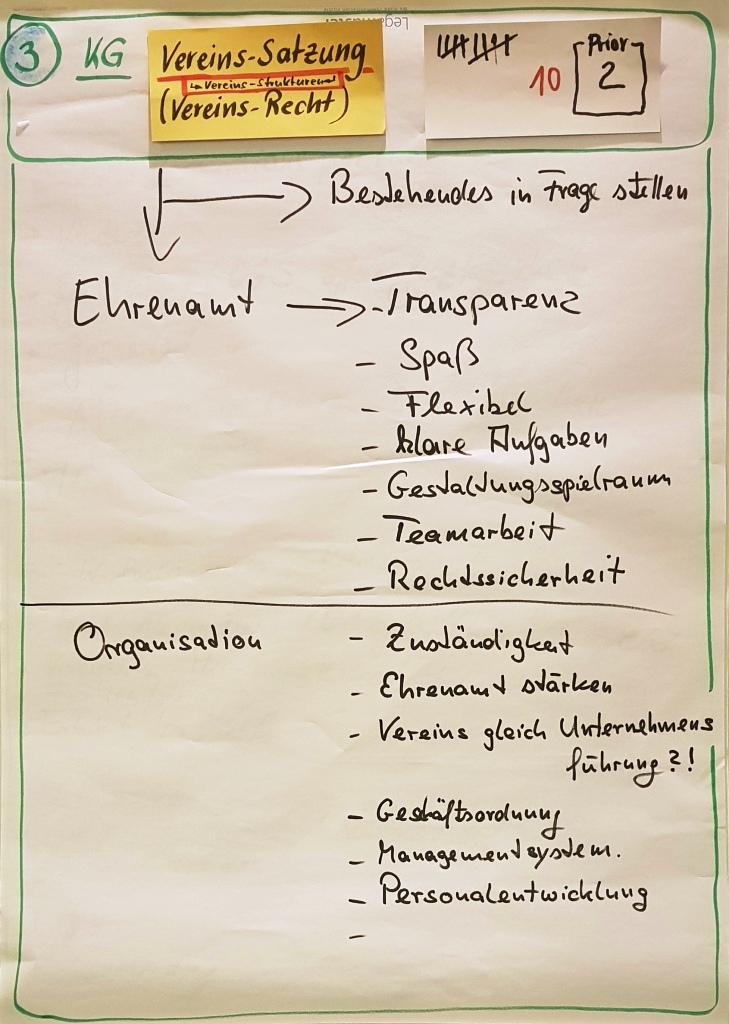 3 KG
Vereins-Satzung
↳ Vereins-Strukturen
(Vereins-Recht)
10
Prior
2
→ Bestehendes in Frage stellen
Ehrenamt → - Transparenz
- Spaß
- Flexibel
- klare Aufgaben
- Gestaltungsspielraum
- Teamarbeit
- Rechtssicherheit
Organisation
- Zuständigkeit
- Ehrenamt stärken
- Vereins gleich Unternehmens
führung?!
- Geschäftsordnung
- Managementsystem.
- Personalentwicklung
-